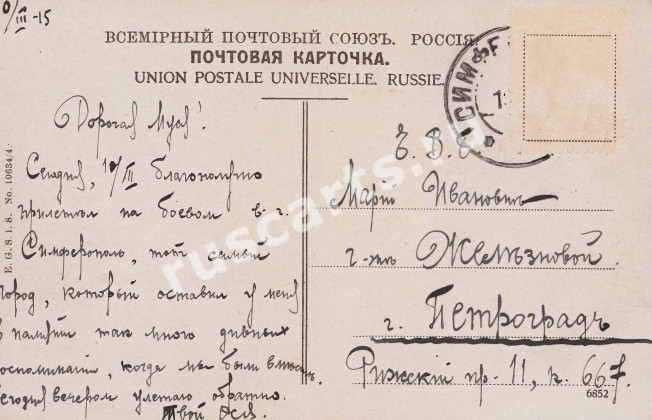 10/III-15
ВСЕМІРНЫЙ ПОЧТОВЫЙ СОЮЗЪ. РОССІЯ.
ПОЧТОВАЯ КАРТОЧКА.
UNION POSTALE UNIVERSELLE. RUSSIE.
СИМФЕ
Дорогая Муся!
Сегодня, 10/III благополучно
прилетѣл на боевом в г.
Симферополь, тот самый
город, который оставил у меня
в памяти так много дивных
воспоминаній, когда мы были вмѣстѣ.
Сегодня вечером улетаю обратно.
Твой
Е. В. Б.
Маріи Ивановнѣ
г-жѣ Желѣзновой
г. Петроградъ
Рижскій пр. 11, к. 667.
6852
E. G. S. I. S. No. 10634/4
ruscarts.ru